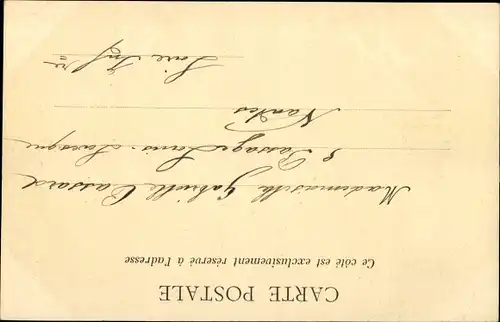 CARTE POSTALE
Ce côté est exclusivement réservé à l'adresse
Mademoiselle Gabrielle Cassard
8 Passage Louis-Levesque
Nantes
Loire Infre